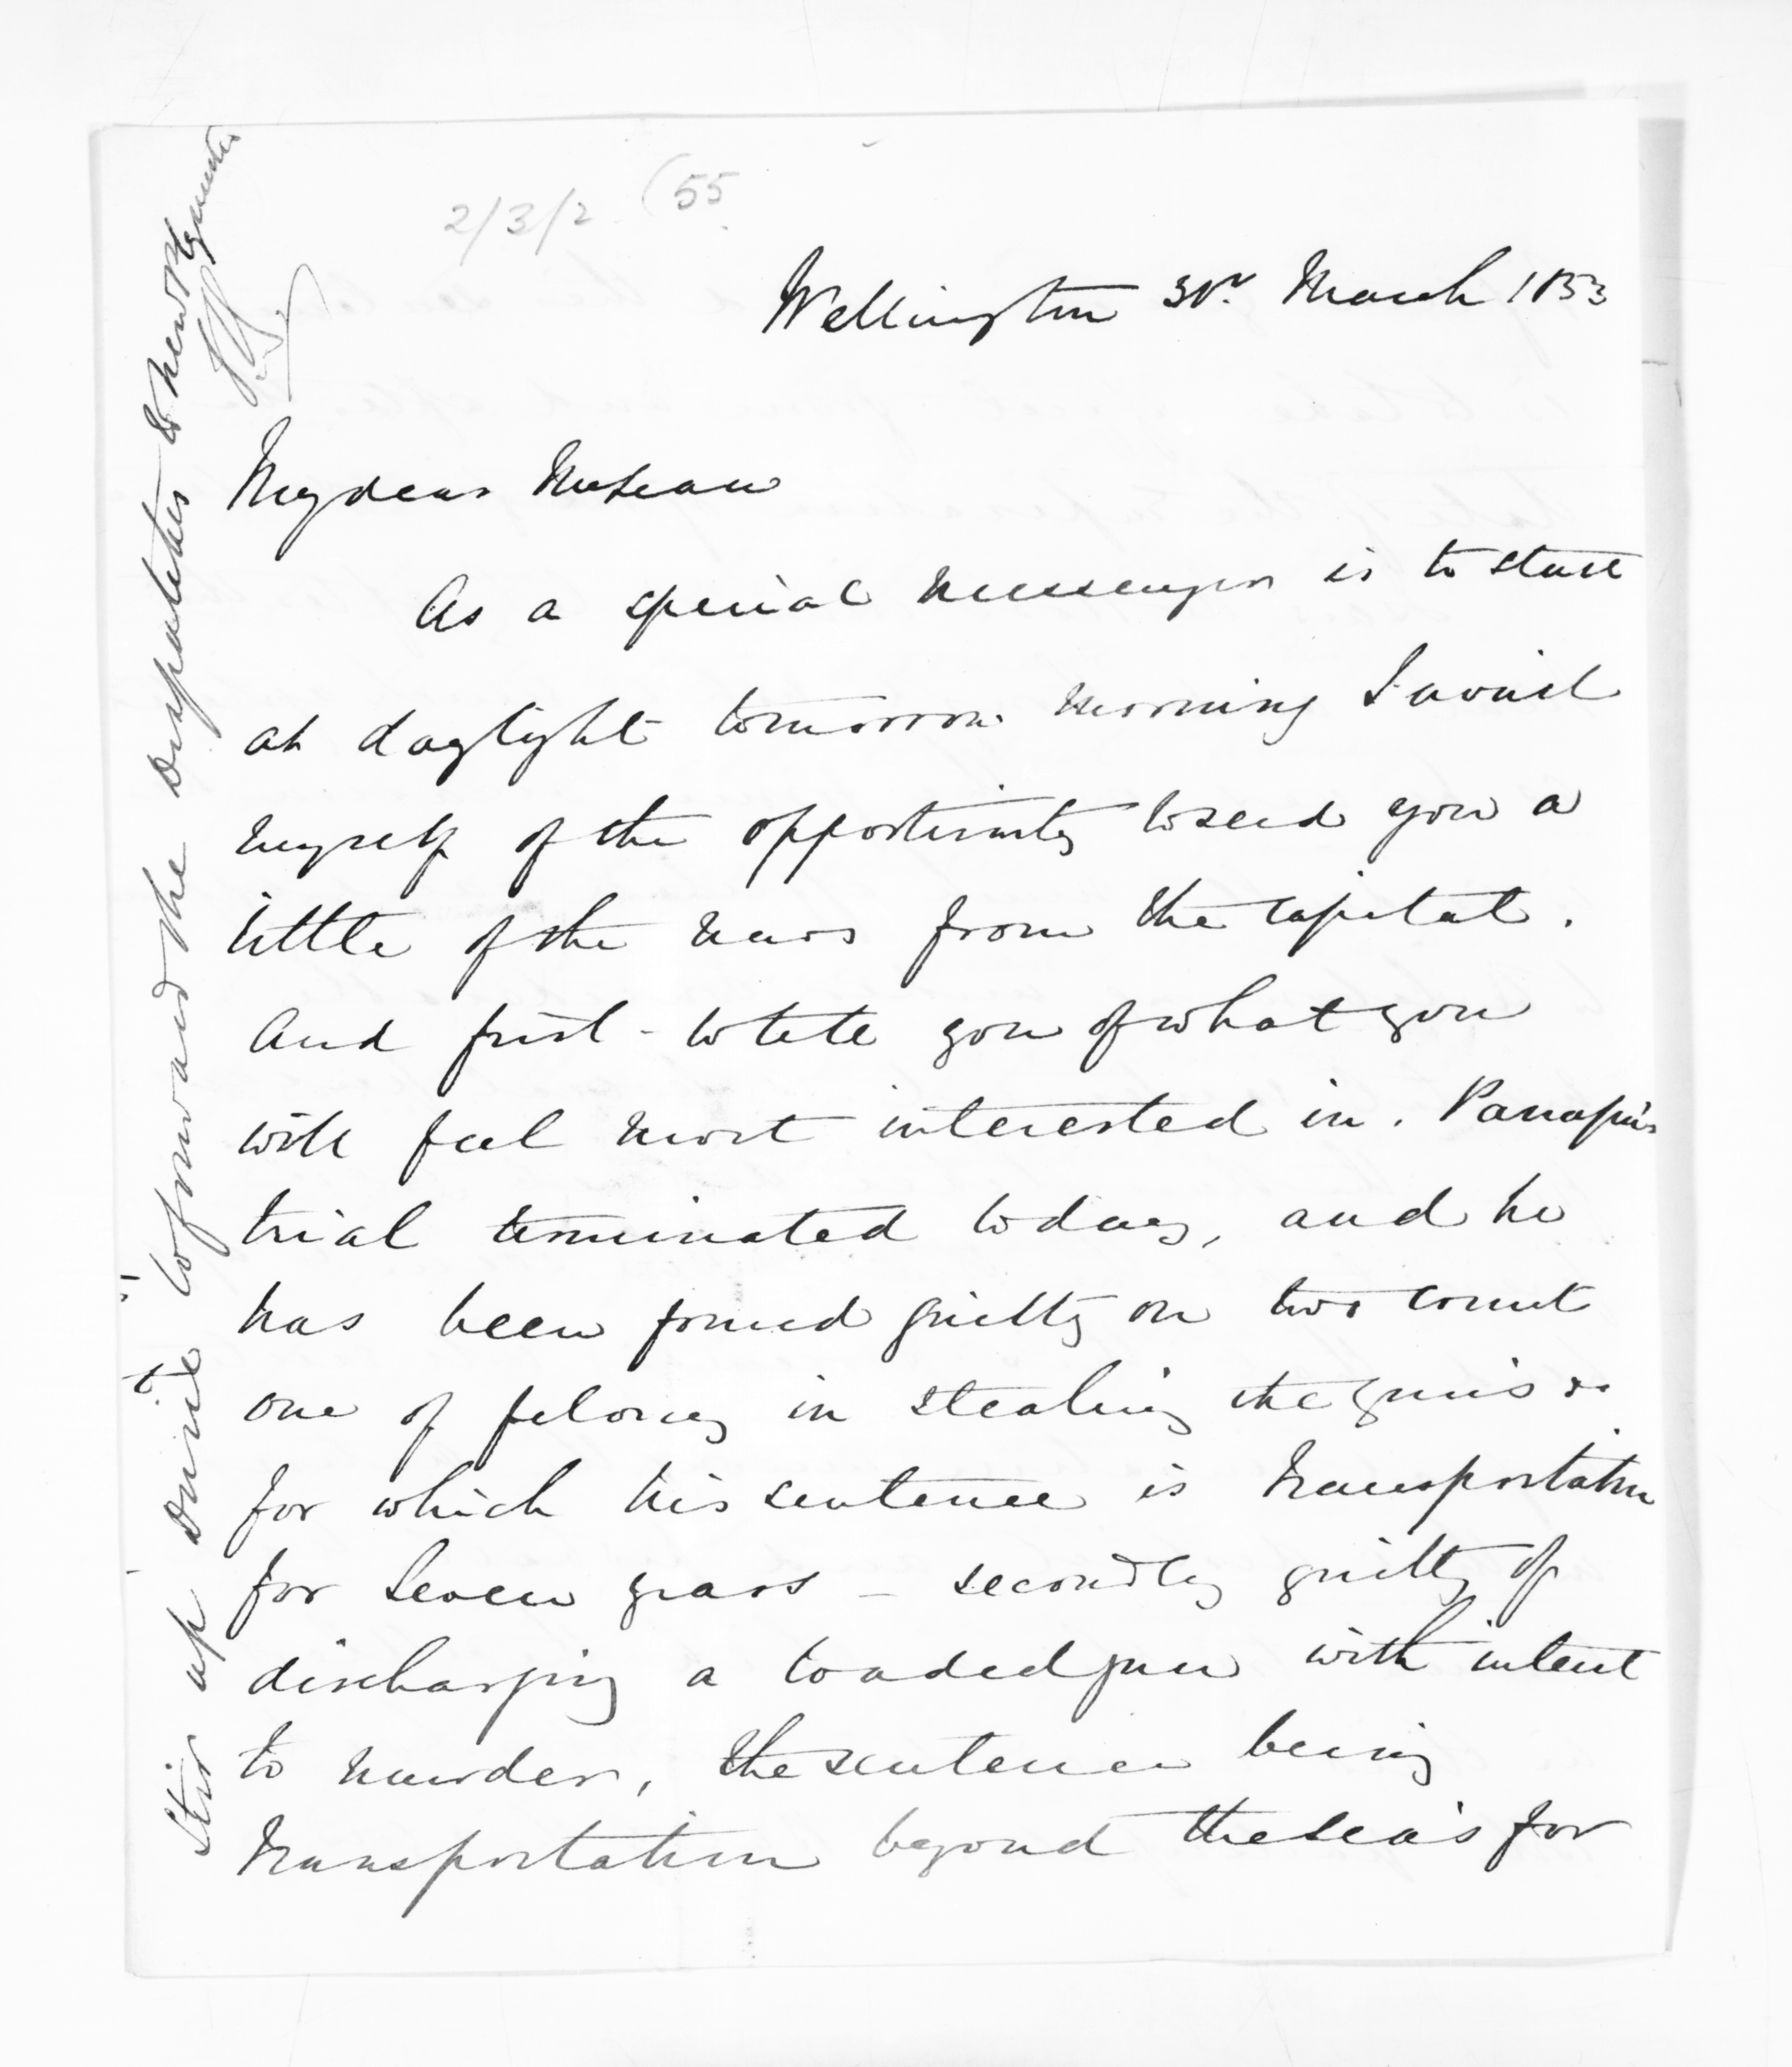 2/3/2 (55
Wellington 31st March 1853
My dear McLean
As a special messenger is to start
at daylight tomorrow morning I avail
myself of the opportunity to send you a
little of the news from the capital.
And first - to tell you of what you
will feel most interested in. Panapa's
trial terminated today, and he
has been found guilty on two count
one of felony in stealing the guns &c
for which his sentence is transportation
for seven years - secondly guilty of
discharging a loaded gun with intent
to murder, the sentence being
transportation beyond the seas for
Stir up to forward the despatches to New Plymouth